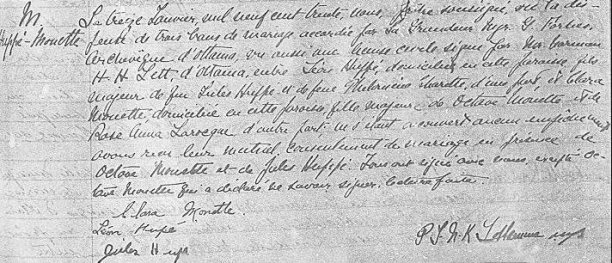 M.
Huppé-Monette
Le treize Janvier, mil neuf cent trente, nous, prêtre soussigné vu la dis-
pense de trois bans de mariage accordée par Sa Grandeur Mgr. G. Forbes,
Archevêque d'Ottawa, vu aussi une license civile signée par
H. H. Lett, d'Ottawa, entre Léon Huppé, domicilié en cette paroisse, fils
majeur de feu Jules Huppé et de feue d'une part, et Clara
Monette, domiciliée en cette paroisse fille majeure de Octave Monette et de
Rose Anna Larocque d'autre part. ne s'étant découvert aucun empêchement
avons reçu leur mutuel consentement de mariage en présence de
Octave Monette et de Jules Huppé. Tous ont signé avec nous, excepté Oc-
tave Monette qui a déclaré ne savoir signer. Lecture faite.
Clara Monette
Léon Huppé
Jules Hup